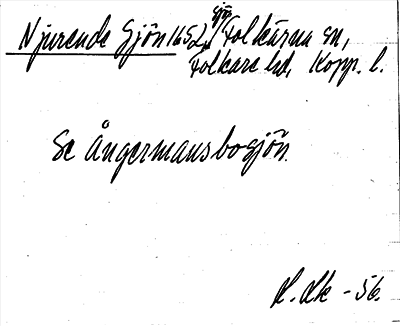 Njurende Sjön 1652, sjö, Folkärna sn,
Folkare hd, Kopp. l.
Se Ångermansbosjön.
- 56.